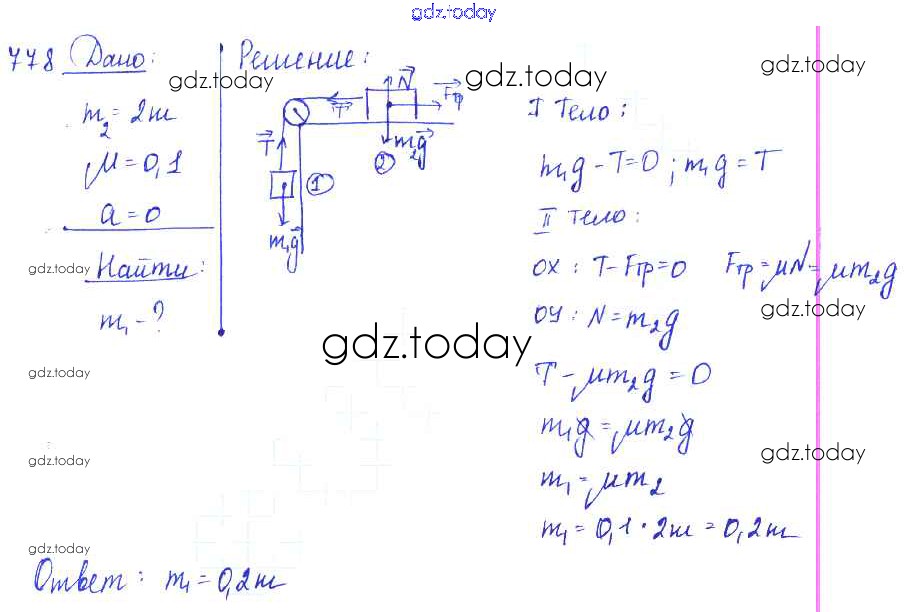 gdz.today
778 Дано:
m₂ = 2кг
μ = 0,1
a = 0
Найти:
m₁ - ?
Решение:
N Fтр
T
T m₂g
②
①
m₁g
I Тело:
m₁g - T = 0 ; m₁g = T
II тело:
OX : T - Fтр = 0 Fтр = μN = μm₂g
OY : N = m₂g
T - μm₂g = 0
m₁g = μm₂g
m₁ = μm₂
m₁ = 0,1 · 2кг = 0,2кг
Ответ : m₁ = 0,2кг
gdz.today
gdz.today
gdz.today
gdz.today
gdz.today
gdz.today
gdz.today
gdz.today
gdz.today
gdz.today
gdz.today